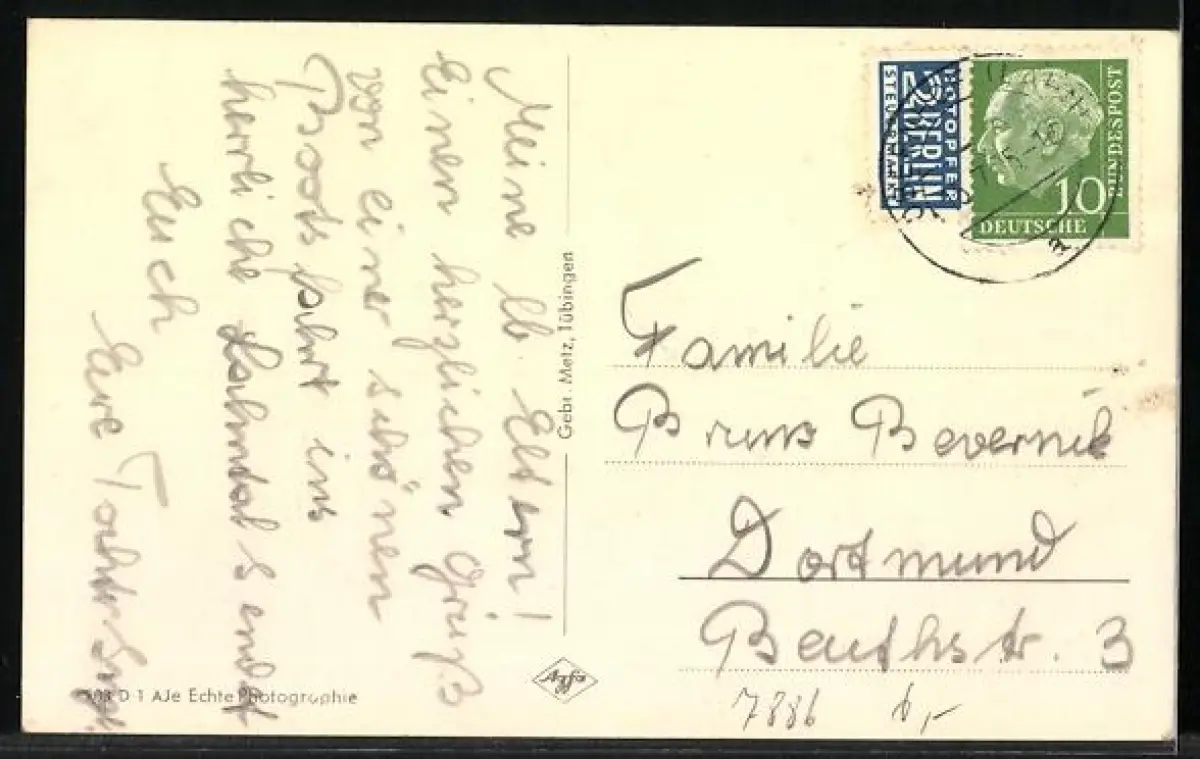 Meine lb. Eltern!
Einen herzlichen Gruß
von einer schönen
Bootsfahrt ins
herrliche Lahntal sendet
Euch
Eure Tochter
Gebr. Metz, Tübingen
NOTOPFER
2 BERLIN
STEUERMARKE
BUNDESPOST
10
DEUTSCHE
Familie
Bruno Bevernik
Dortmund
Beuthstr. 3
7886 6,-
Agfa
D 1 AJe Echte Photographie